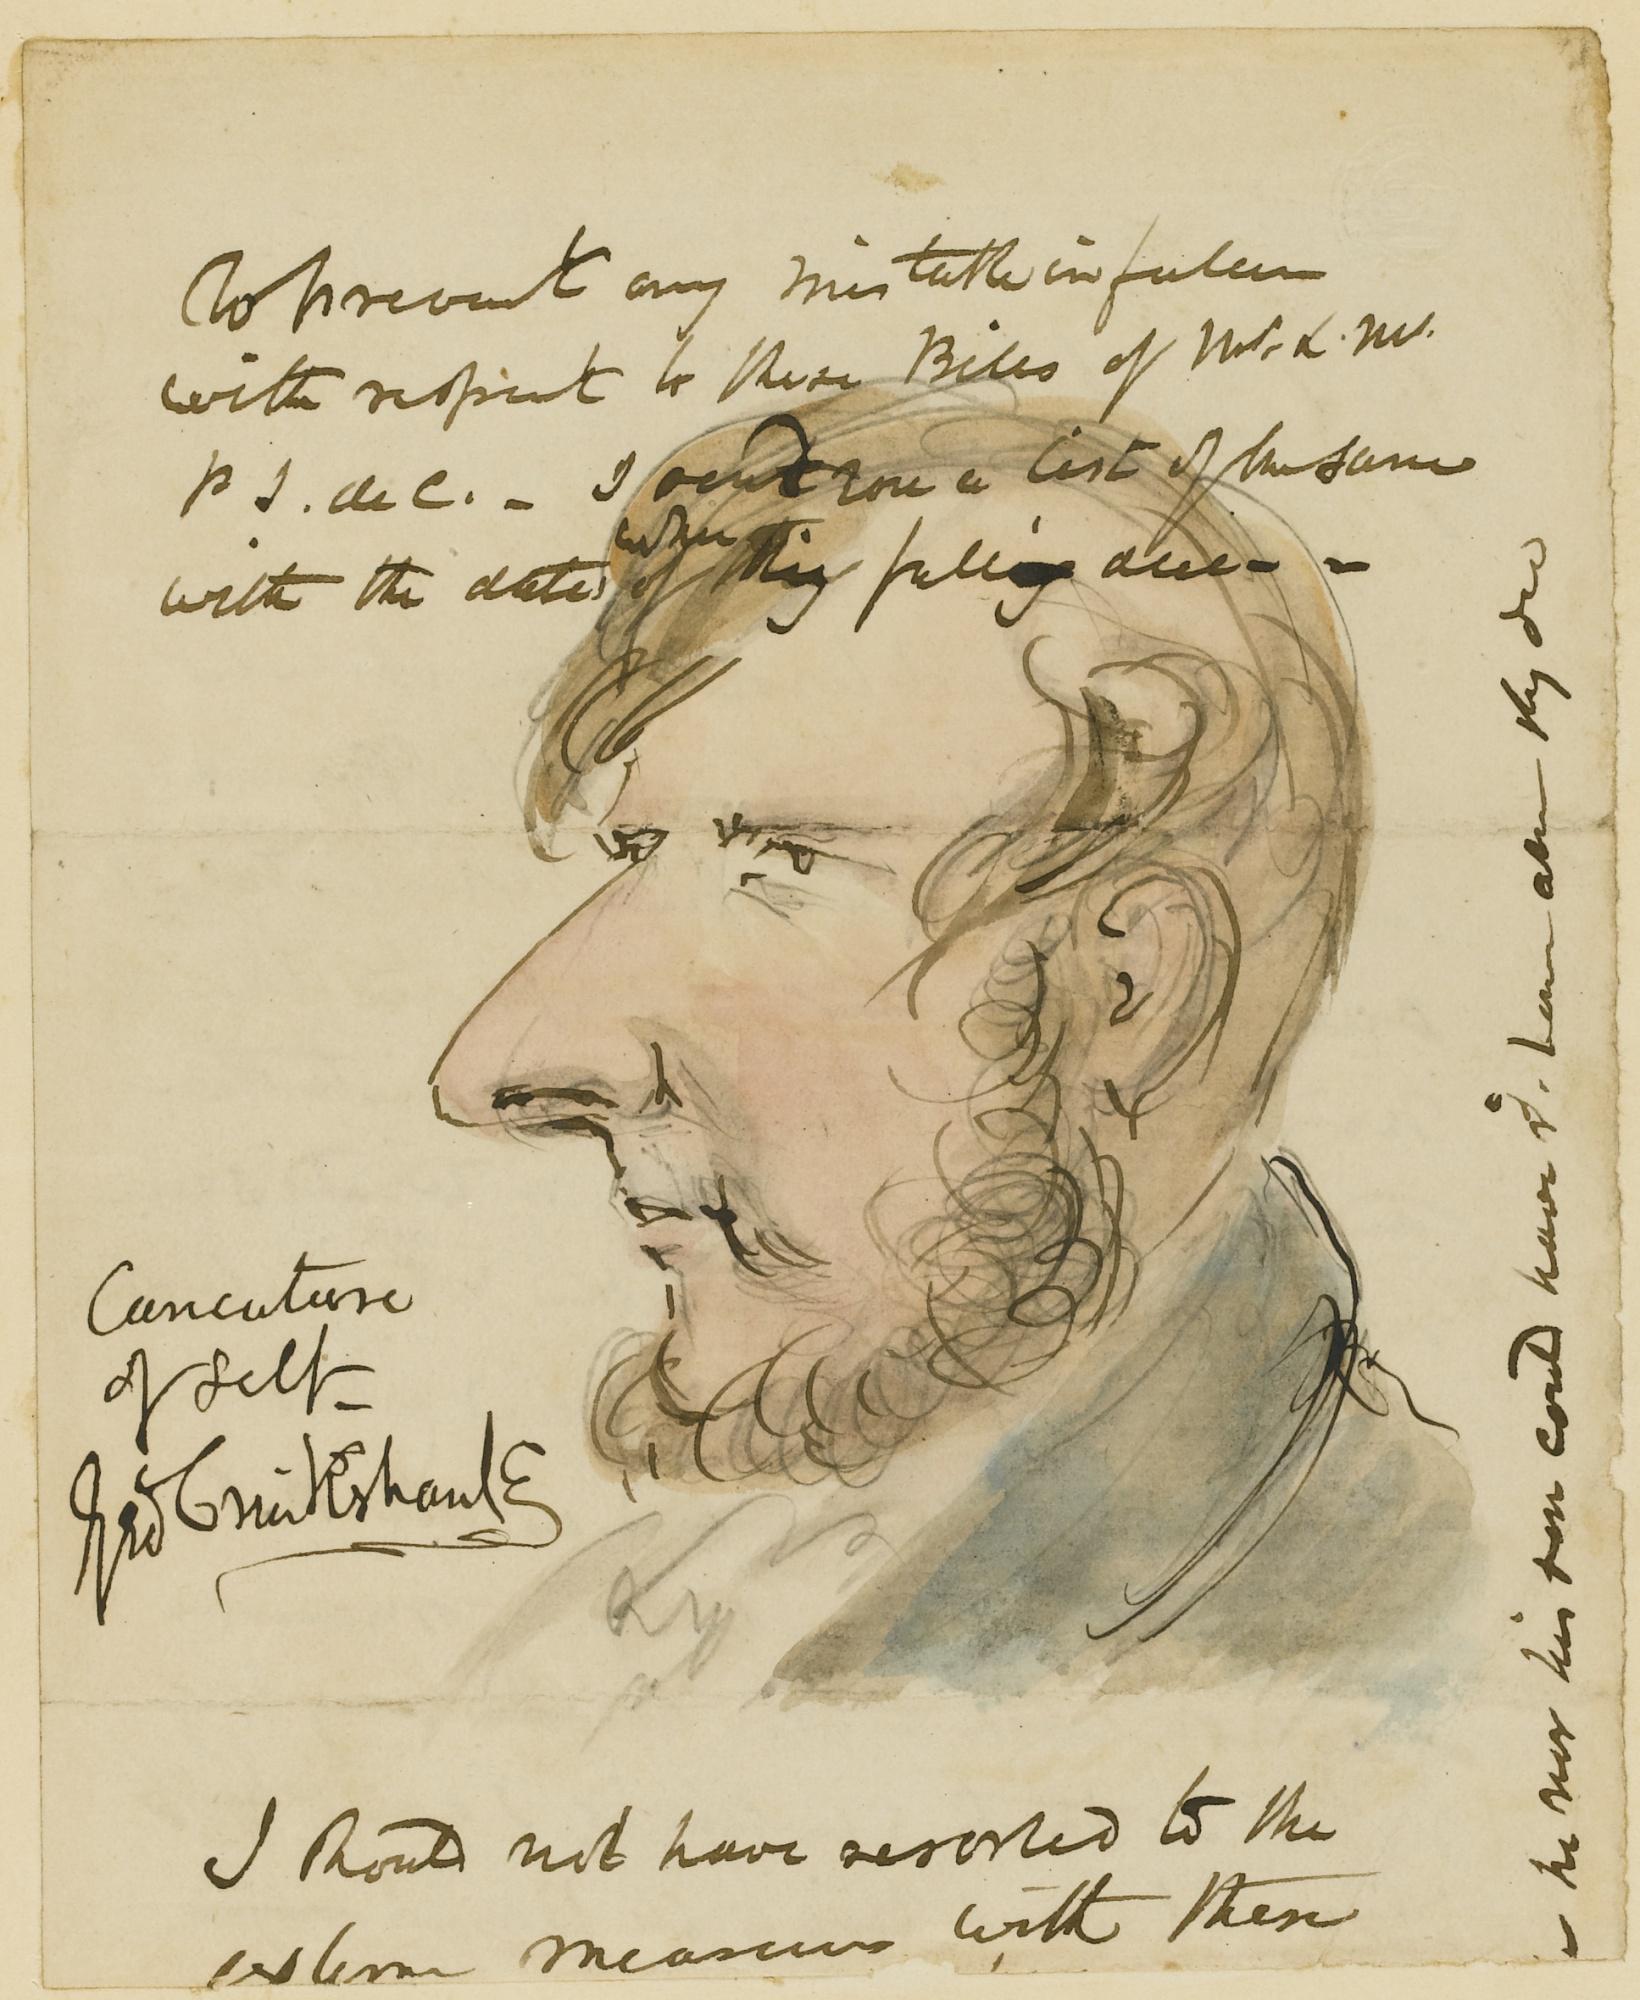 To prevent any mistake in future
with respect to these Bills of Mr. & Mr.
P S. de C. - I send you a list of the same
when
with the dates of they falling due - -
Caricature
of self -
Geo Cruikshank
I should not have resorted to the
extreme measures with these
he nor his son could have have been they do